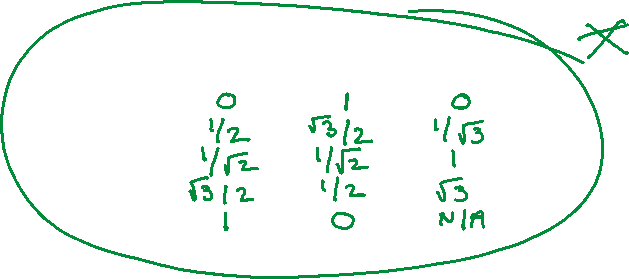 0 1 0
1/2 √3/2 1/√3
1/√2 1/√2 1
√3/2 1/2 √3
1 0 N/A